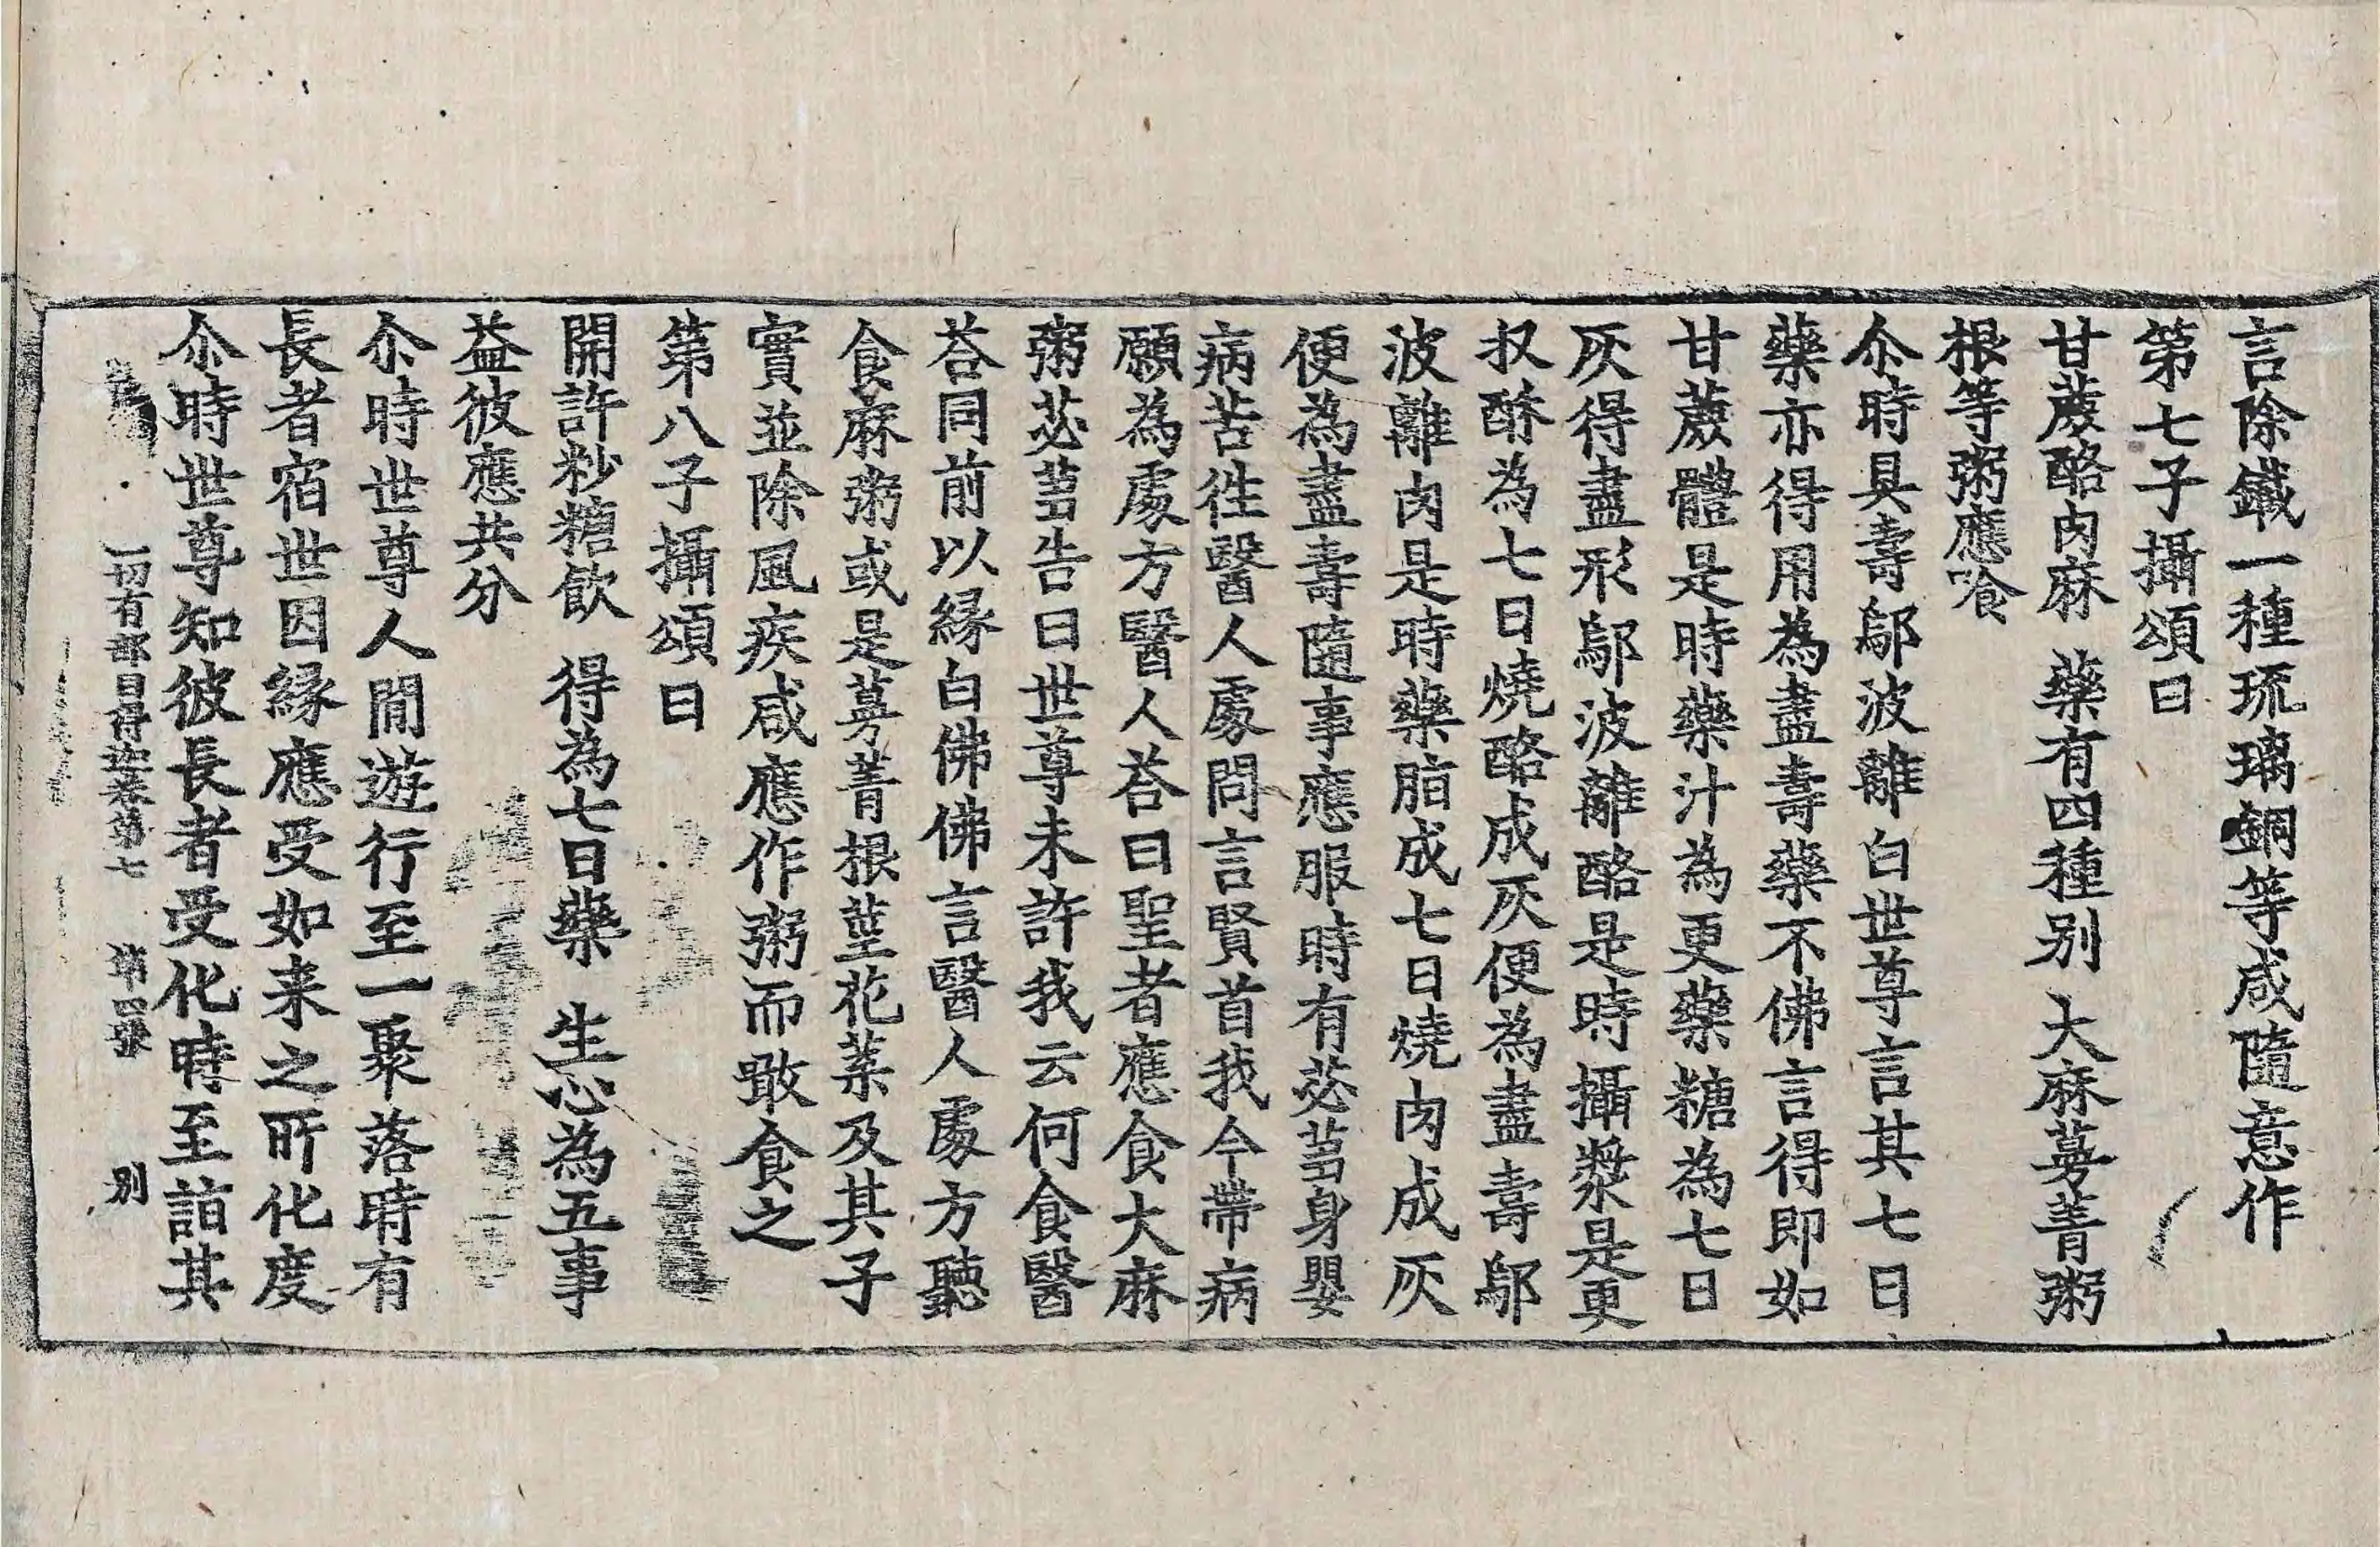 言除鐵一種琉璃銅等咸隨意作
第七子攝頌曰
甘蔗酪肉麻　藥有四種別　大麻蔓菁粥
根等粥應飡
尒時具壽鄔波離白世尊言其七日
藥亦得用為盡壽藥不佛言得即如
甘蔗體是時藥汁為更藥糖為七日
灰得盡形鄔波離酪是時攝漿是更
収酥為七日燒酪成灰便為盡壽鄔
波離肉是時藥脂成七日燒肉成灰
便為盡壽隨事應服時有苾蒭身嬰
病苦徃醫人處問言賢首我今帶病
願為處方醫人荅曰聖者應食大麻
粥苾蒭告曰世尊未許我云何食醫
荅同前以緣白佛佛言醫人處方聽
食麻粥或是蔓菁根莖花葉及其子
實並除風疾咸應作粥而噉食之
第八子攝頌曰
開許粆糖飲　得為七日藥　生心為五事
益彼應共分
尒時世尊人間遊行至一聚落時有
長者宿世因緣應受如来之所化度
尒時世尊知彼長者受化時至詣其
一切有部目得迦卷第七　第四張　別